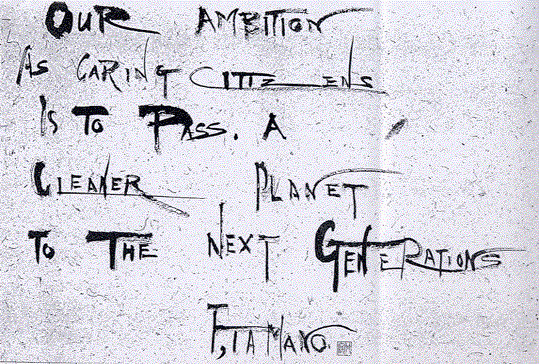 OUR AMBITION
AS CARING CITIZENS
IS TO PASS. A
CLEANER PLANET
TO THE NEXT GENERATIONS